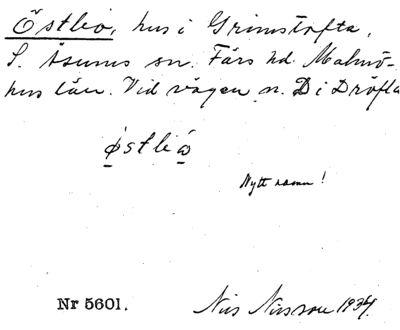 Östlio, hus i Grimstofta,
S. Åsums sn. Färs hd. Malmö-
hus län. Vid vägen n. D i Dröfta
östliö
Nytt namn!
Nr 5601. Nils Nilsson 1934.